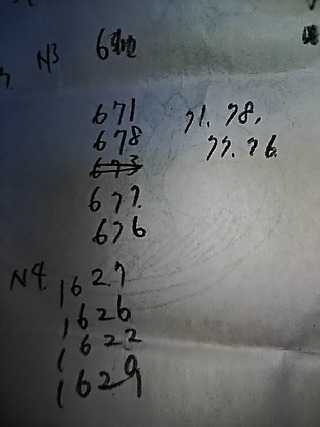 N3 6軸
671 71. 78.
678 77. 76.
673
677
676
N4 1627
1626
1622
1629